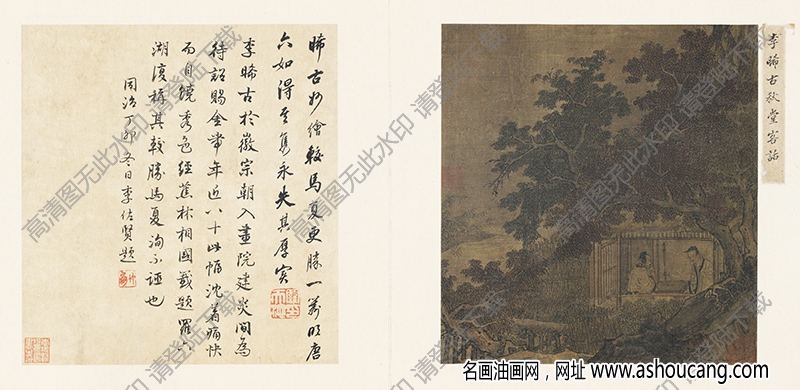 李晞古秋堂客話
晞古妙繪較馬夏更勝一籌明唐
六如得其雋永失其厚實
李晞古於徽宗朝入畫院建炎間為
待詔賜金帶年近八十此幅沈着痛快
而自饒秀色經蕉林相國籤題羅六
湖濱稱其較勝馬夏洵不誣也
同治丁卯冬日李佐賢題
高清图无此水印 请登陆下载
名画油画网，网址 www.ashoucang.com